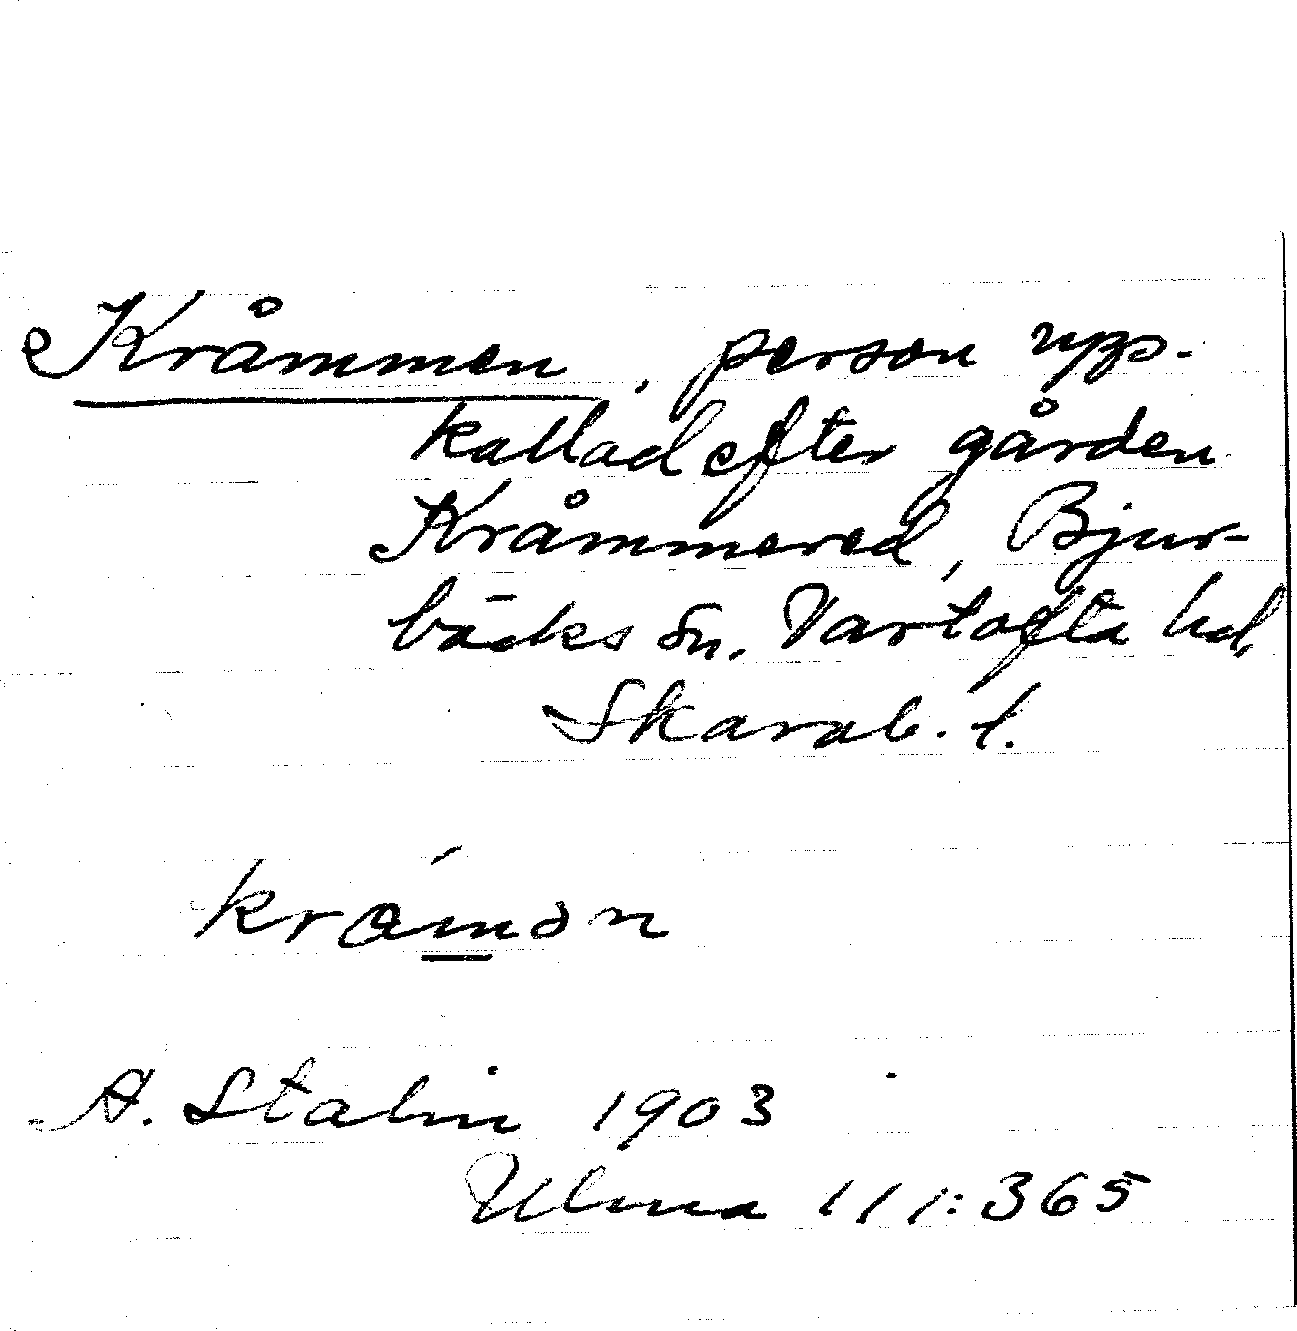 Kråmmen, person upp-
kallad efter gården
Kråmmered, Bjur-
bäcks sn. Vartofta hd,
Skarab. l.
kråmɘn
A. Stalin 1903
Ulma 111:365